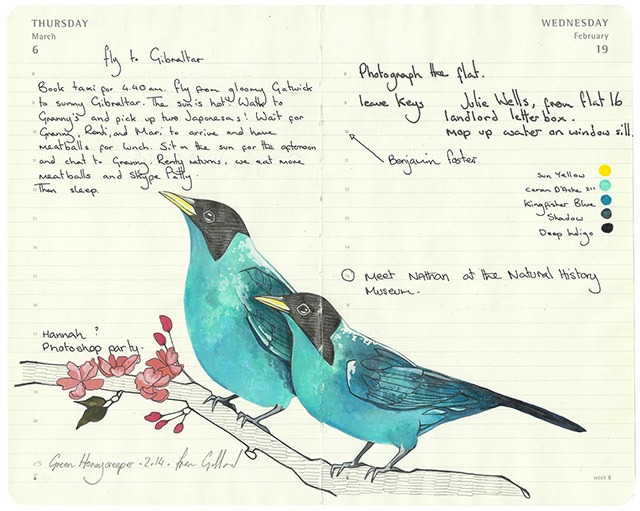 THURSDAY
March
6
fly to Gibraltar
Book taxi for 4.40am. Fly from gloomy Gatwick
to sunny Gibraltar. The sun is hot! Walk to
Granny's and pick up two Japonesas! Wait for
Granny, Renti, and Mari to arrive and have
meatballs for lunch. Sit in the sun for the afternoon
and chat to Granny. Renty returns, we eat more
meatballs and Skype Patty.
Then sleep.
Hannah?
Photoshop party.
Green Honeycreeper · 2014 ·
WEDNESDAY
February
19
Photograph the flat.
leave keys Julie Wells, from flat 16
landlord letterbox.
mop up water on window sill.
Benjamin foster
Sun Yellow
Caran D'Ache 211
Kingfisher Blue
Shadow
Deep Indigo
Meet Nathan at the Natural History
Museum.
week 8